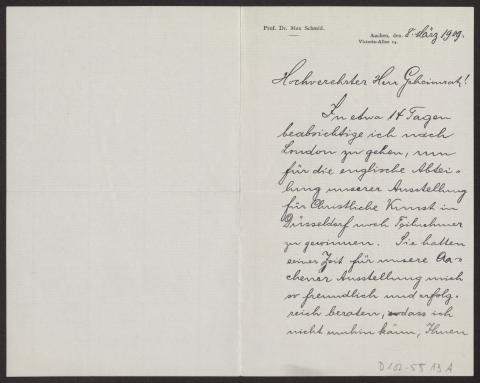 Prof. Dr. Max Schmid.
Aachen, den 8. März 1909.
Victoria-Allee 14.
Hochverehrter Herr Geheimrath!
In etwa 14 Tagen
beabsichtige ich nach
London zu gehen, um
für die englische Abtei-
lung unserer Ausstellung
für Christliche Kunst in
Düsseldorf noch Teilnehmer
zu gewinnen. Sie hatten
seiner Zeit für unsere Aa-
chener Ausstellung mich
so freundlich und erfolg-
reich beraten, sodass ich
nicht umhin kann, Ihnen
D 102-58 13 A